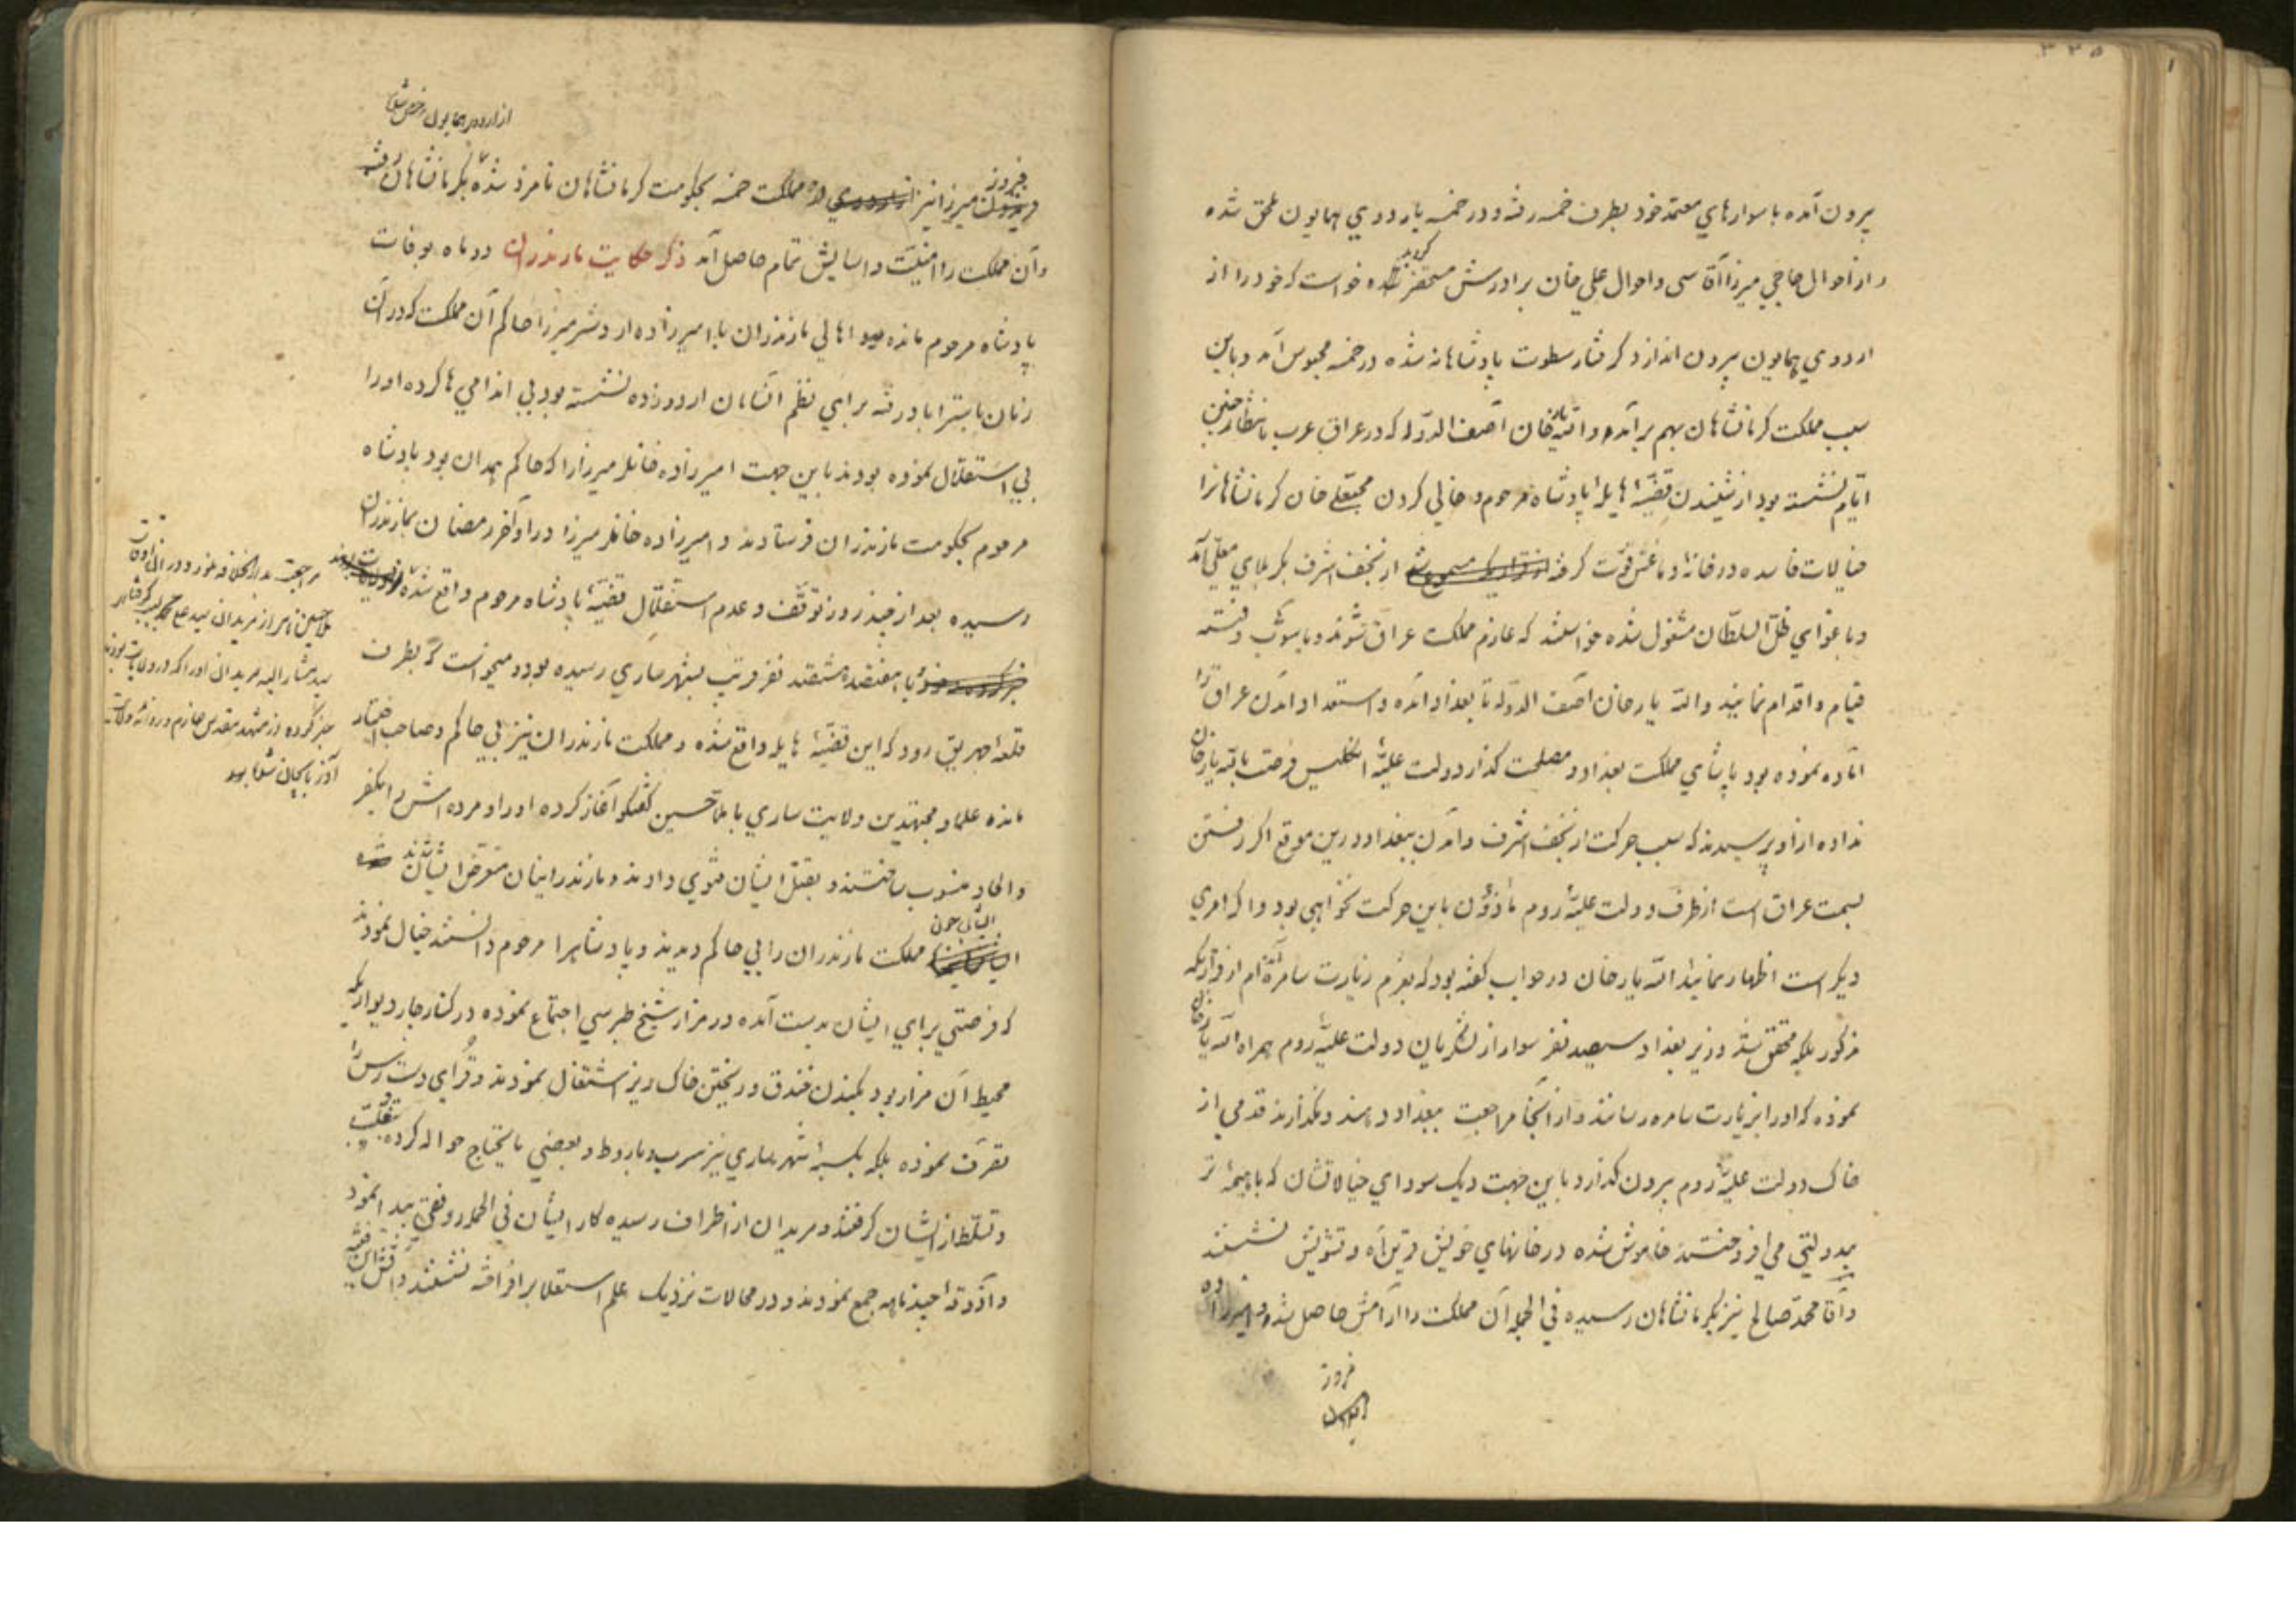 ۳۳۵
بیرون آمده با سوارهای معتمد خود بطرف خمسه رفته و در خمسه باردوی همایون ملحق شده
و از احوال حاجی میرزا آقاسی و احوال علی خان برادرش مستحضر گردیده خواست که خود را از
اردوی همایون بیرون اندازد گرفتار سطوت پادشاهانه شده در خمسه محبوس آمد و باین
سبب مملکت کرمانشاهان بهم برآمد و الله یار خان آصف الدوله که در عراق عرب بانتظار چنین
ایام نشسته بود از شنیدن قضیهٔ هایلهٔ پادشاه مرحوم و خالی کردن محبعلی خان کرمانشاهانرا
خیالات فاسده در خانهٔ دماغش قوت گرفته از نجف اشرف بکربلای معلی آمد
و باغوای ظل السلطان مشغول شده خواستند که عازم مملکت عراق شوند و باشوب و فتنه
قیام و اقدام نمایند و الله یار خان آصف الدوله تا بغداد آمده و استعداد آمدن عراق را
آماده نموده بود پاشای مملکت بغداد و مصلحت گذار دولت علیهٔ انگلیس فرصت بالله یار خان
نداده از او پرسیدند که سبب حرکت از نجف اشرف و آمدن ببغداد درین موقع اگر رفتن
بسمت عراق است از طرف دولت علیهٔ روم مأذون باین حرکت نخواهی بود و اگر امری
دیگر است اظهار نمائید الله یار خان در جواب گفته بود که بعزم زیارت سامره آمده‌ام از قراریکه
مذکور بلکه محقق شد وزیر بغداد سیصد نفر سوار از لشکریان دولت علیهٔ روم همراه الله یار خان
نموده که او را بزیارت سامره رسانند و از آنجا مراجعت ببغداد دهند و نگذارند قدمی از
خاک دولت علیهٔ روم بیرون گذارد باین جهت دیک سودای خیالاتشان که با هیمهٔ تر
بیدولتی می افروختند خاموش شده در خانهای خویش قرین آه و تشویش نشستند
و آقا محمد صالح نیز بکرمانشاهان رسیده فی الجمله آن مملکت را آرامش حاصل شد و امیرزاده
فیروز
از اردوی همایون مرخص شد
فیروز میرزا نیز از مملکت خمسه بحکومت کرمانشاهان نامزد شده بکرمانشاهان رفت
و آن مملکت را امنیت و آسایش تمام حاصل آمد ذکر حکایت مازندران دو ماه بوفات
پادشاه مرحوم مانده اهالی مازندران با امیرزاده اردشیر میرزا حاکم آن مملکت که در آن
زمان باستراباد رفته برای نظم آنسامان اردو زده نشسته بود بی اندامی ها کرده او را
بی استقلال نموده بودند باین جهت امیرزاده خانلر میرزا را که حاکم همدان بود پادشاه
مرحوم بحکومت مازندران فرستادند و امیرزاده خانلر میرزا در اواخر رمضان بمازندران
رسیده بعد از چند روز توقف و عدم استقلال قضیهٔ پادشاه مرحوم واقع شده
با هفتصد هشتصد نفر قریب بشهر ساری رسیده بود و میخواست که بطرف
قلعهٔ چهریق رود که این قضیهٔ هایله واقع شده و مملکت مازندران نیز بی حاکم و صاحب اختیار
مانده علما و مجتهدین ولایت ساری با ملا حسین گفتگو آغاز کرده او را و مرده اش را بکفر
و الحاد منسوب ساختند و بقتل ایشان فتوی دادند و مازندرانیان متعرض ایشان شدند
ایشان چون مملکت مازندران را بی حاکم دیدند و پادشاهرا مرحوم دانستند خیال نمودند
که فرصتی برای ایشان بدست آمده در مزار شیخ طبرسی اجتماع نموده در کنار چار دیواریکه
محیط آن مزار بود بکندن خندق و ریختن خاک ریز اشتغال نمودند و قرای دست رس را
تصرف نموده بلکه بکسبهٔ شهر ساری نیز سرب و باروط و بعضی مایحتاج حواله کرده بتغلب
و تسلط از ایشان گرفتند و مریدان از اطراف رسیده کار ایشان فی الجمله رونقی پیدا نمود
و آذوقهٔ چند ماهه جمع نمودند و در محالات نزدیک علم استقلا برافراشته نشستند و آتش این فتنه
مراجعت بدارالخلافه نمود و در آن اوقات
ملا حسین نام از مریدان سید علی محمد
سید مشار الیه مریدان او را که در ولایات بودند
خبر کرده از مشهد مقدس عازم و روانهٔ ولایت
آذربایجان شد